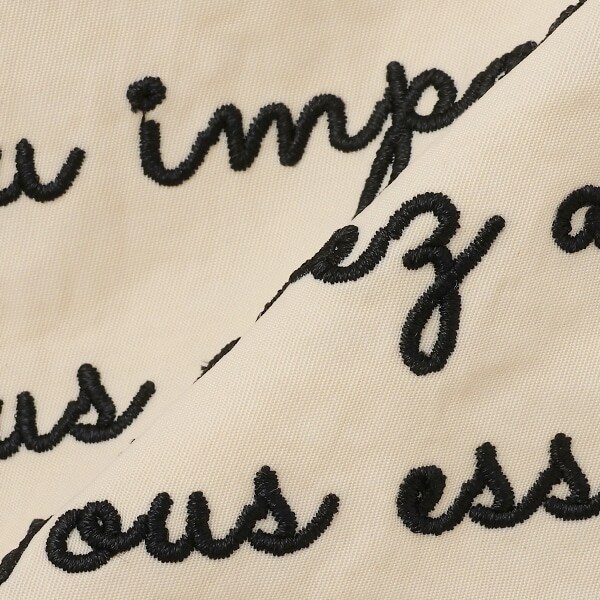 u imp
ez a
us
vous ess